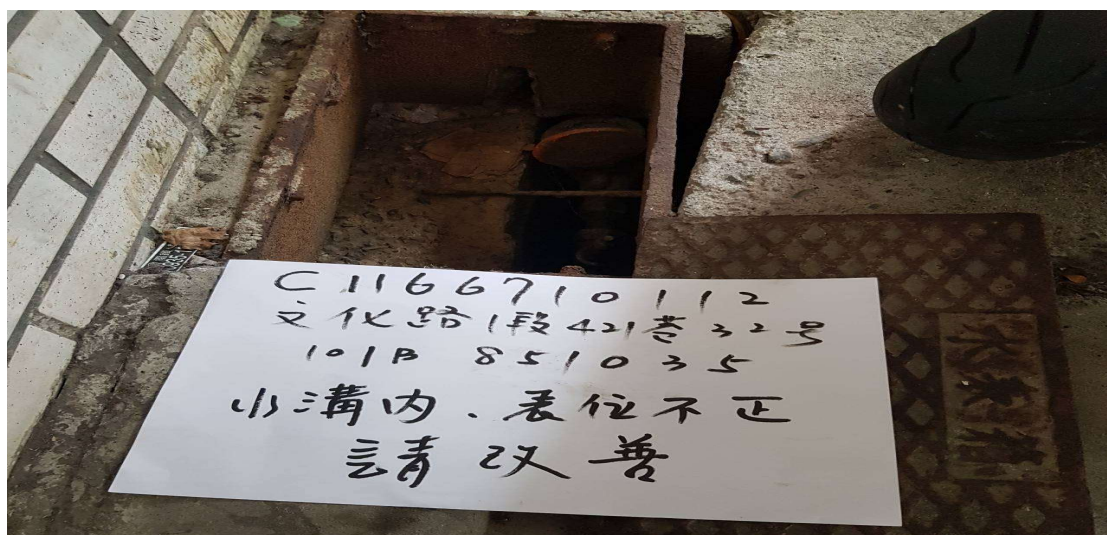 C11667101 12
文化路1段421巷32号
101B 851035
水溝内、表位不正
請改善
水表箱